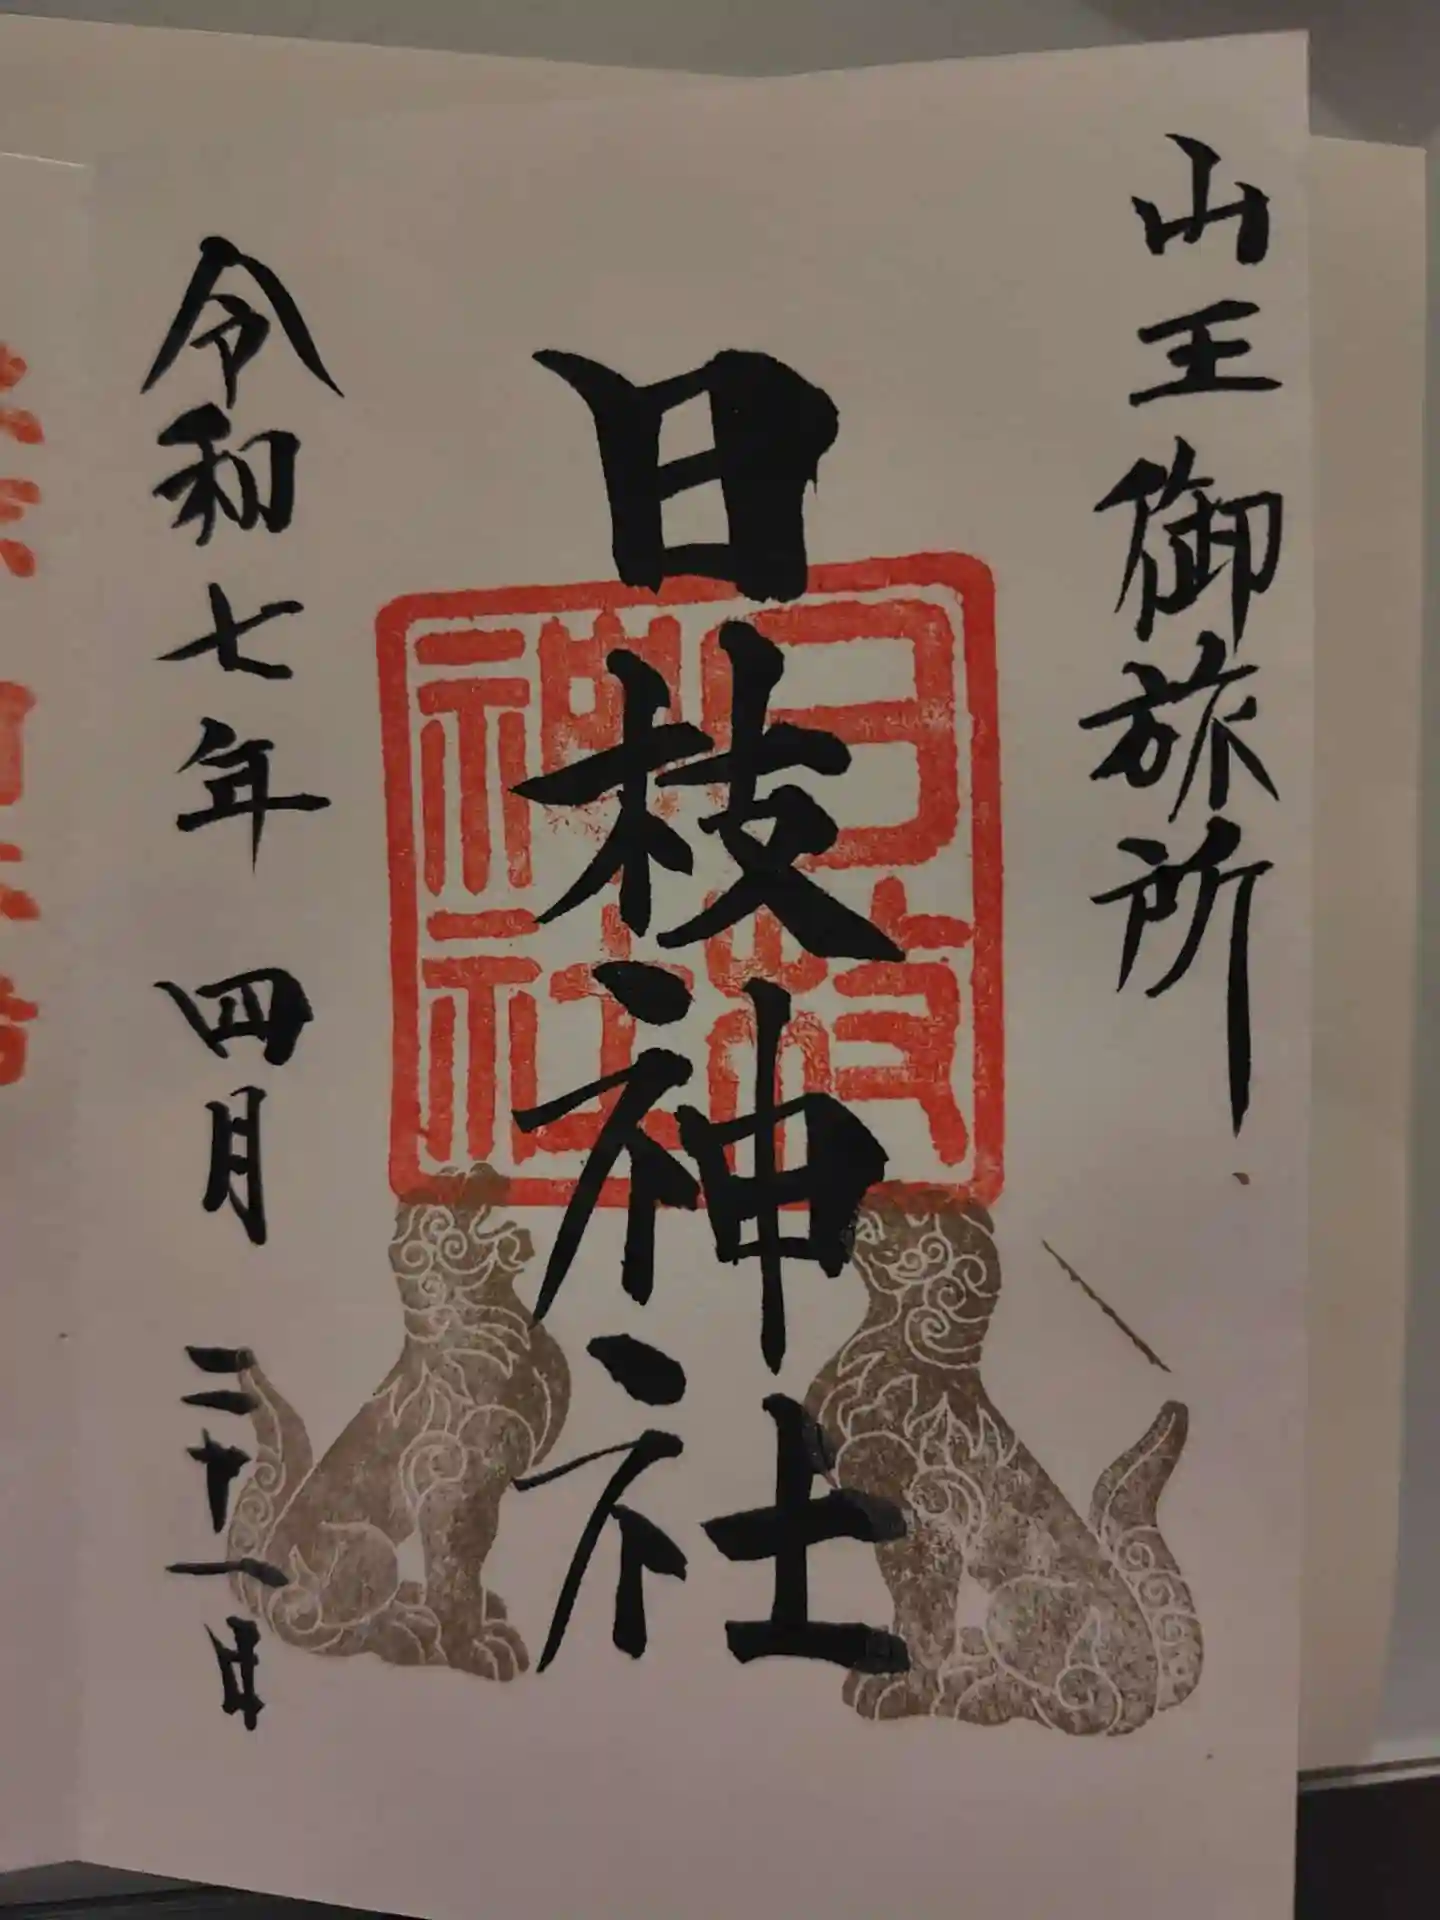 山王御旅所
日枝神社
日枝神社
令和七年 四月 二十一日